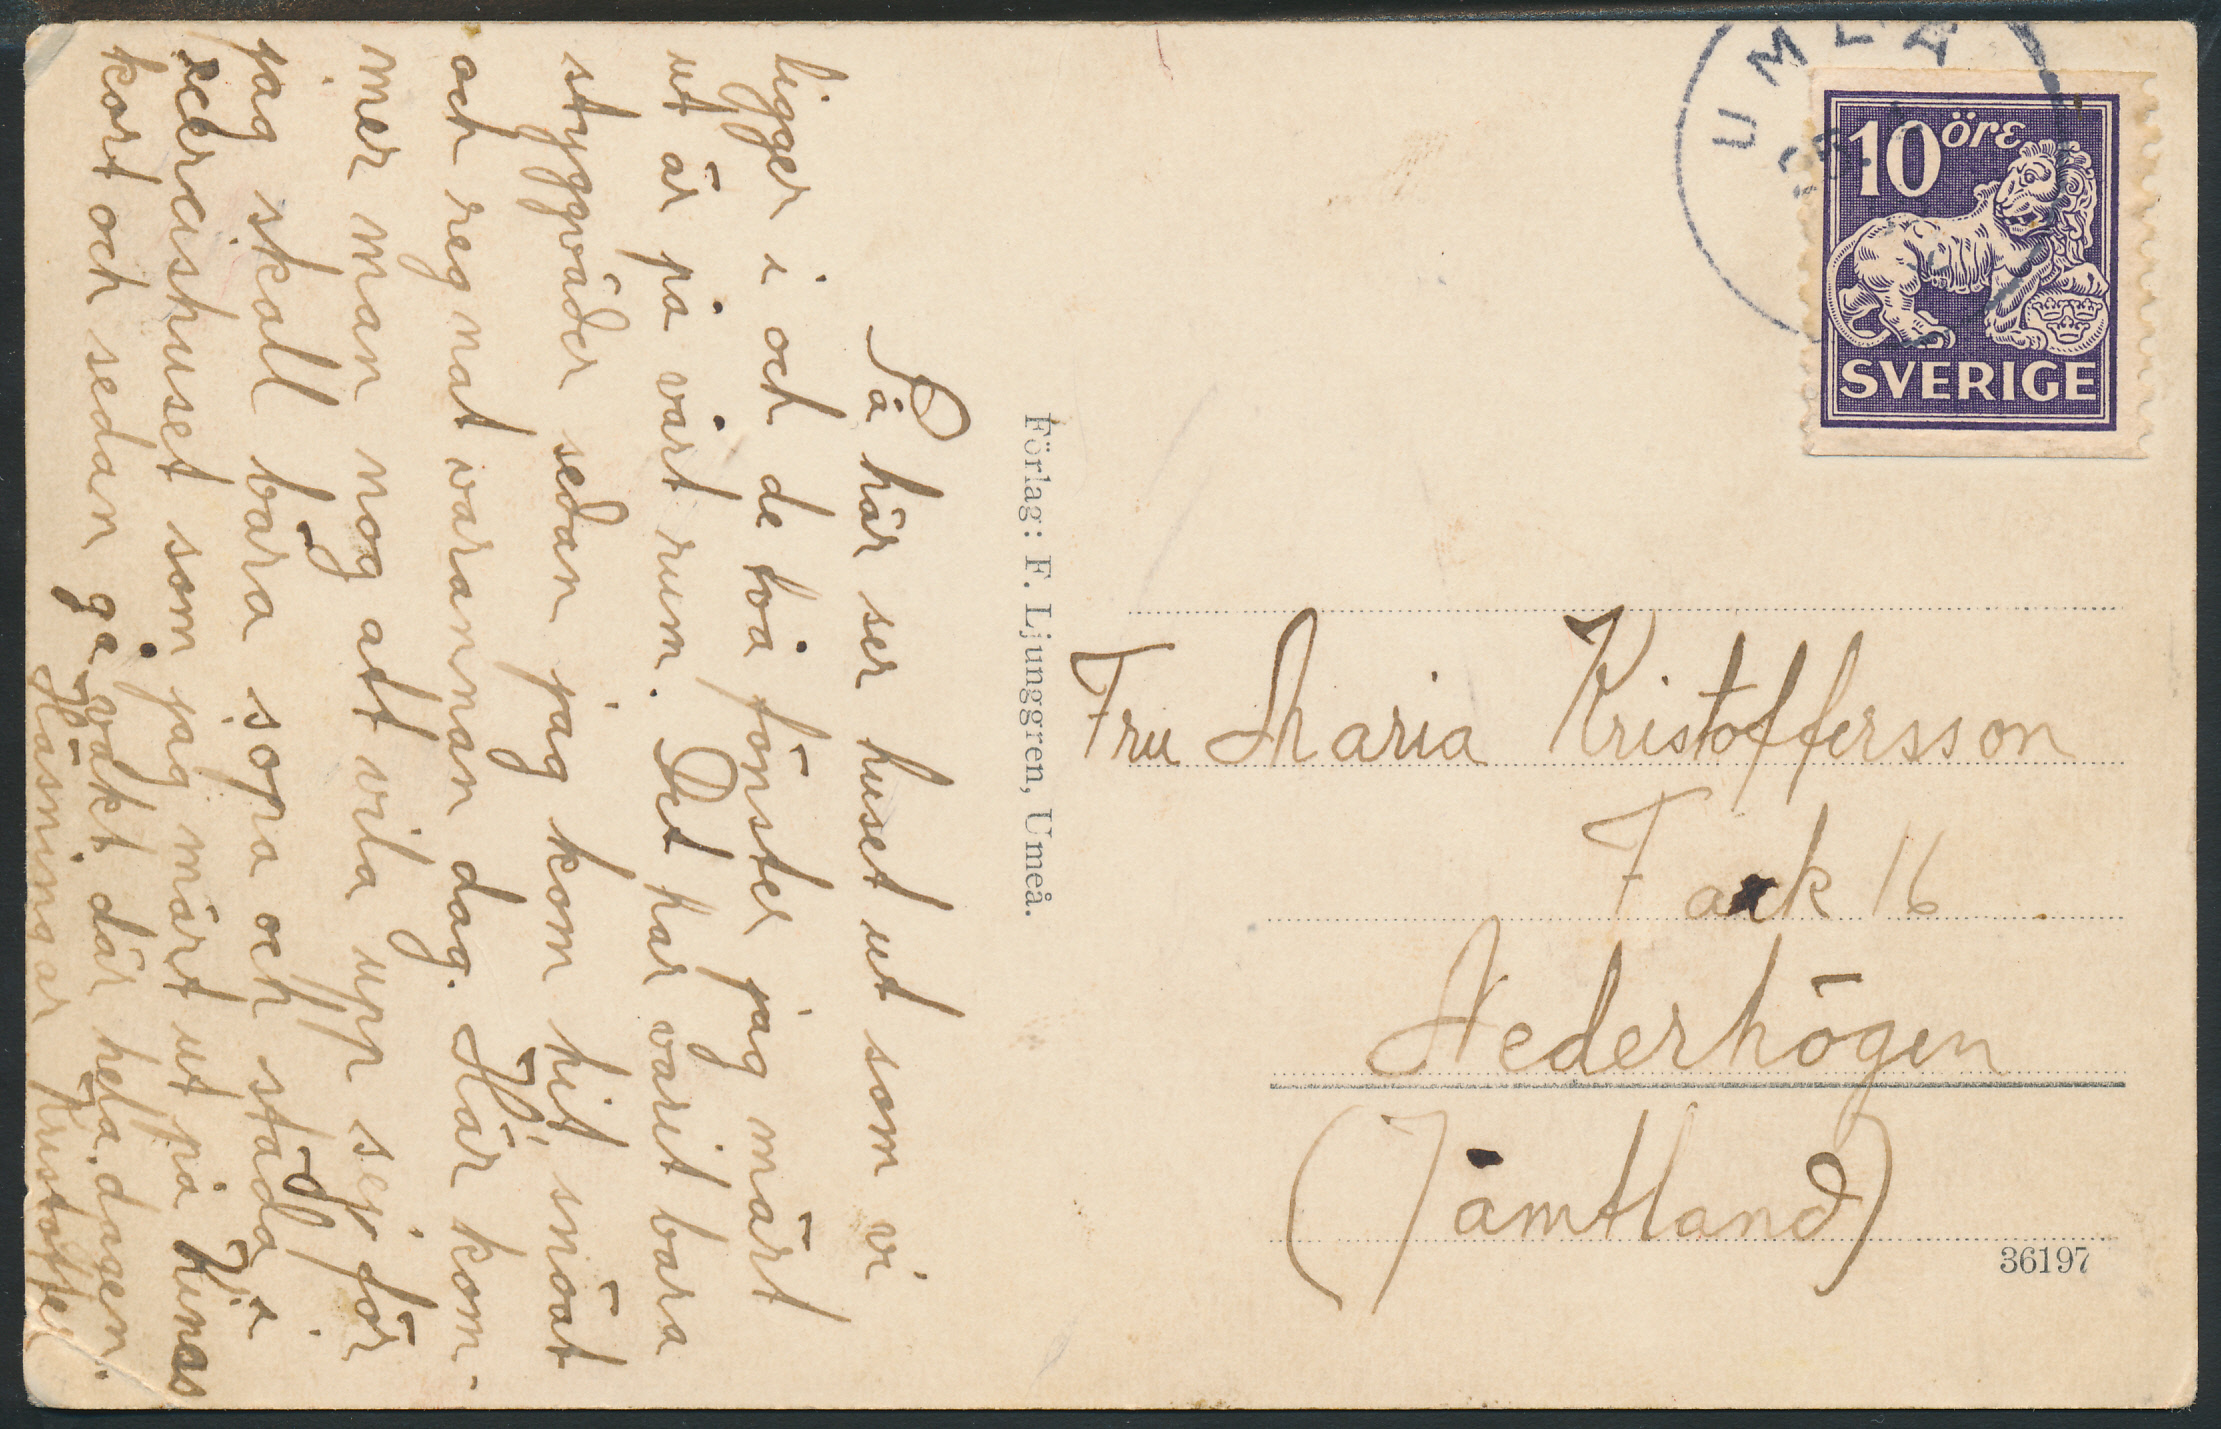 Så här ser huset ut som vi
ligger i och de två fönster jag märt
ut är på vårt rum. Det har varit bara
styggväder sedan jag kom hit, snöat
och regnat varannan dag. Här kom-
mer man nog att vila upp sej för
jag skall bara sopa och städa i
exercishuset som jag märt ut på Kinas
kort och sedan gå vakt där hela dagen.
Hälsningar Kristoffer
Förlag: F. Ljunggren, Umeå.
UMEÅ
10 öre
SVERIGE
Fru Maria Kristoffersson
Fack 16
Nederhögen
(Jämtland)
36197